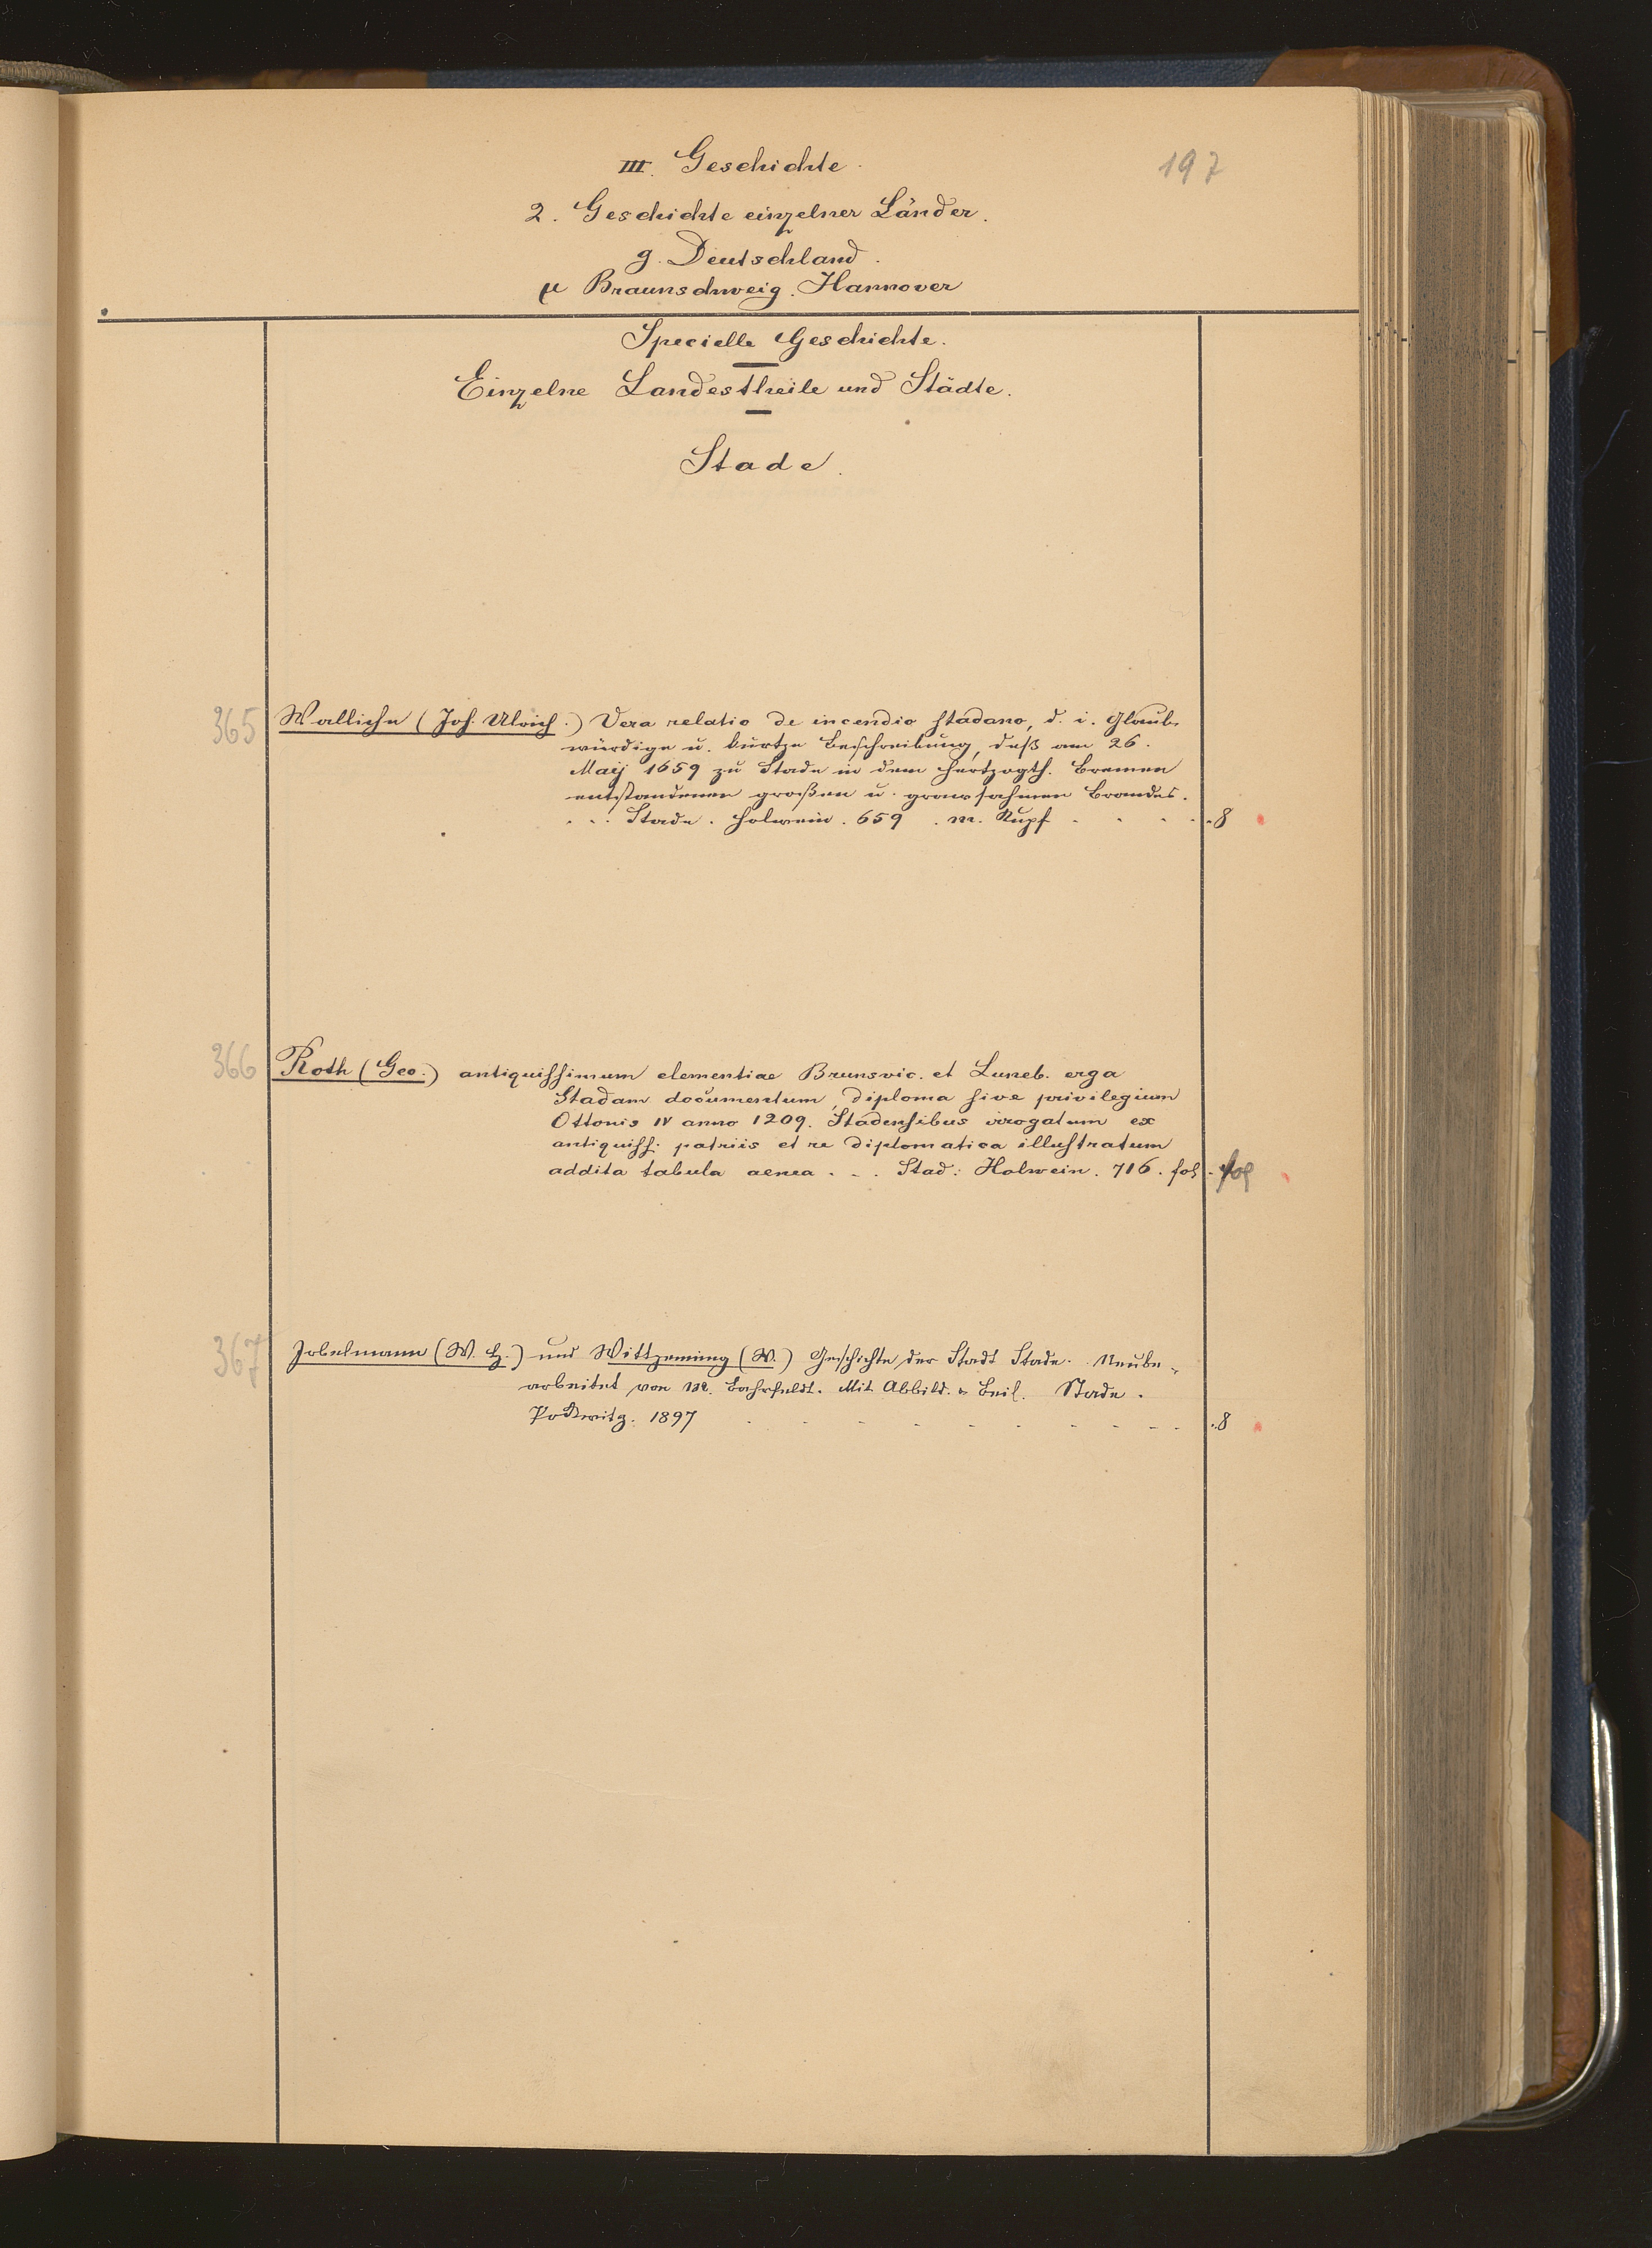 197
III. Geschichte.
2. Geschichte einzelner Länder.
g. Deutschland.
µ Braunschweig. Hannover
Specielle Geschichte.
Einzelne Landestheile und Städte.
Stade.
365 Wallichn (Joh. Ulrich.) Vera relatio de incendio stadano, d. i. Glaub-
würdige u. kurtze Beschreibung, deß am 26.
Maij 1659 zu Stade in dem Hertzogth. Bremen
entstandenen großen u. grausahmen Brandes.
. . . Stade. Holwein. 659. m. Kupf . . . . . 8
366 Roth (Geo.) antiquissimum clementiae Brunsvic. et Luneb. erga
Stadam documentum, diploma sive privilegium
Ottonis IV anno 1209. Stadensibus irrogatum ex
antiquiss. patriis et re diplomatica illustratum
addita tabula aenea . . . Stad: Holwein. 716. fol. fol
367 Jobelmann (W. H.) und Wittpenning (W.) Geschichte der Stadt Stade. Neube-
arbeitet von M. Bahrfeldt. Mit Abbild. u Beil. Stade.
Pockwitz. 1897 . . . . . . . . . . 8